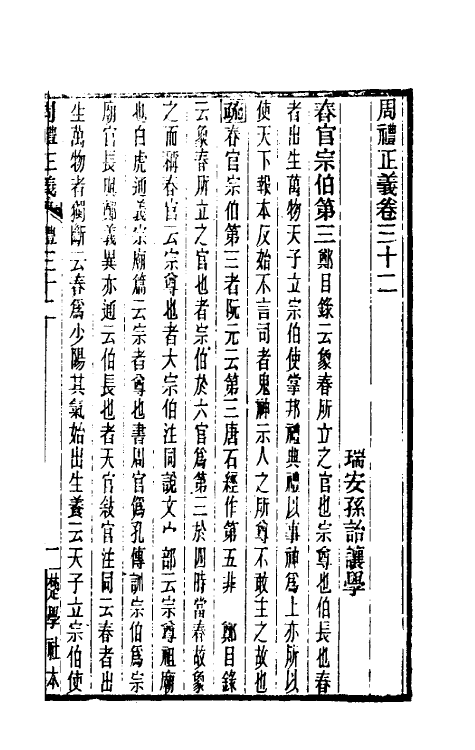 周禮正義卷三十二
瑞安孫詒讓學
春官宗伯第三鄭目錄云象春所立之官也宗尊也伯長也春
者出生萬物天子立宗伯使掌邦禮典禮以事神爲上亦所以
使天下報本反始不言司者鬼神示人之所尊不敢主之故也
疏春官宗伯第三者阮元云第三唐石經作第五非 鄭目錄
云象春所立之官也者宗伯於六官爲第三於四時當春故象
之而稱春官云宗尊也者大宗伯注同說文宀部云宗尊祖廟
也白虎通義宗廟篇云宗者尊也書周官僞孔傳訓宗伯爲宗
廟官長與鄭義異亦通云伯長也者天官敘官注同云春者出
生萬物者獨斷云春爲少陽其氣始出生養云天子立宗伯使
周禮正義 禮三十二 一 楚學社本